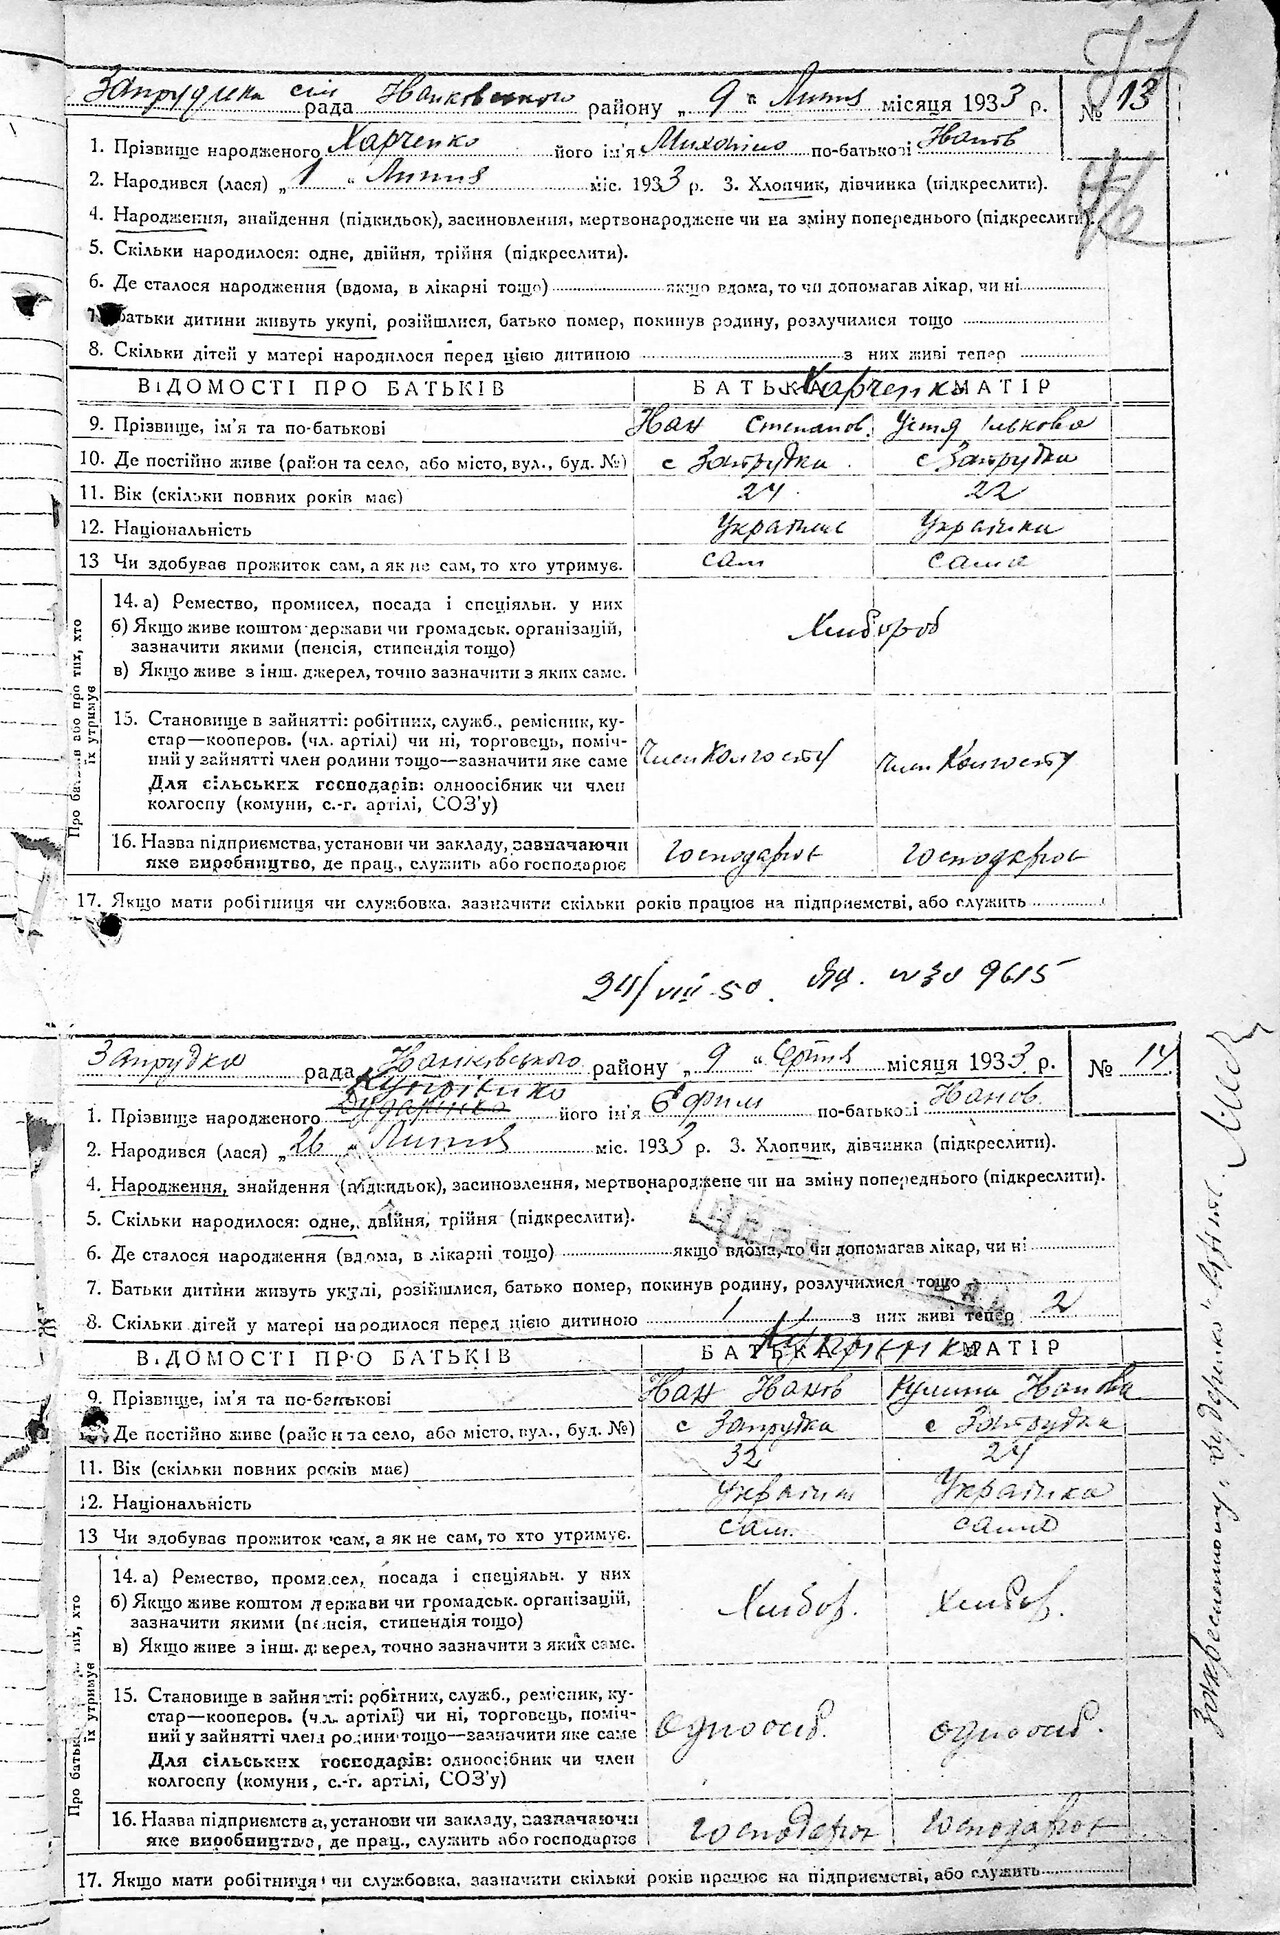 Запрудська сіль рада району „ 9 “ Липня місяця 1933 р. № 13
1. Прізвище народженого Харченко його ім'я по-батькові Іванів
2. Народився (лася) „ 1 “ Липня міс. 1933 р. 3. Хлопчик, дівчинка (підкреслити).
4. Народження, знайдення (підкидьок), засиновлення, мертвонароджене чи на зміну попереднього (підкреслити).
5. Скільки народилося: одне, двійня, трійня (підкреслити).
6. Де сталося народження (вдома, в лікарні тощо) якщо вдома, то чи допомагав лікар, чи ні
батьки дитини живуть укупі, розійшлися, батько помер, покинув родину, розлучилися тощо
8. Скільки дітей у матері народилося перед цією дитиною з них живі тепер
ВІДОМОСТІ ПРО БАТЬКІВ БАТЬКА Харченко МАТІР
9. Прізвище, ім'я та по-батькові Іван Степанов. Устя Ількова
10. Де постійно живе (район та село, або місто, вул., буд. №) с Запрудка с Запрудка
11. Вік (скільки повних років має) 24 22
12. Національність Українець Українка
13 Чи здобуває прожиток сам, а як не сам, то хто утримує. сам сама
Про батьків або про тих, хто їх утримує
14. а) Ремество, промисел, посада і спеціяльн. у них
б) Якщо живе коштом держави чи громадськ. організацій,
зазначити якими (пенсія, стипендія тощо) Хлібороб
в) Якщо живе з інш. джерел, точно зазначити з яких саме.
15. Становище в зайнятті: робітник, служб., ремісник, ку-
стар—кооперов. (чл. артілі) чи ні, торговець, поміч-
ний у зайнятті член родини тощо—зазначити яке саме член Колгоспу член Колгоспу
Для сільських господарів: одноосібник чи член
колгоспу (комуни, с.-г. артілі, СОЗ'у)
16. Назва підприємства, установи чи закладу, зазначаючи
яке виробництво, де прац., служить або господарює господарює господарює
17. Якщо мати робітниця чи службовка, зазначити скільки років працює на підприємстві, або служить
24/VIII-50. 9615
Запрудка рада району „ 9 “ місяця 1933 р. № 14
Купрієнко
1. Прізвище народженого його ім'я по-батькові Іванов
2. Народився (лася) „ 26 “ Липня міс. 1933 р. 3. Хлопчик, дівчинка (підкреслити).
4. Народження, знайдення (підкидьок), засиновлення, мертвонароджене чи на зміну попереднього (підкреслити).
5. Скільки народилося: одне, двійня, трійня (підкреслити).
6. Де сталося народження (вдома, в лікарні тощо) якщо вдома, то чи допомагав лікар, чи ні
7. Батьки дитини живуть укупі, розійшлися, батько помер, покинув родину, розлучилися тощо
8. Скільки дітей у матері народилося перед цією дитиною 1 з них живі тепер 2
ВІДОМОСТІ ПРО БАТЬКІВ БАТЬКА Купрієнко МАТІР
9. Прізвище, ім'я та по-батькові Іван Іванов Кулина Іванова
Де постійно живе (район та село, або місто, вул., буд. №) с Запрудка с Запрудка
11. Вік (скільки повних років має) 32 24
12. Національність Українець Українка
13 Чи здобуває прожиток сам, а як не сам, то хто утримує. сам. сама
14. а) Ремество, промисел, посада і спеціяльн. у них
б) Якщо живе коштом держави чи громадськ. організацій,
зазначити якими (пенсія, стипендія тощо) Хлібор. Хлібор.
в) Якщо живе з інш. джерел, точно зазначити з яких саме.
15. Становище в зайнятті: робітник, служб., ремісник, ку-
стар—кооперов. (чл. артілі) чи ні, торговець, поміч-
ний у зайнятті член родини тощо—зазначити яке саме одноосіб. одноосіб.
Для сільських господарів: одноосібник чи член
колгоспу (комуни, с.-г. артілі, СОЗ'у)
16. Назва підприємства, установи чи закладу, зазначаючи
яке виробництво, де прац., служить або господарює господарює господарює
17. Якщо мати робітниця чи службовка, зазначити скільки років працює на підприємстві, або служить